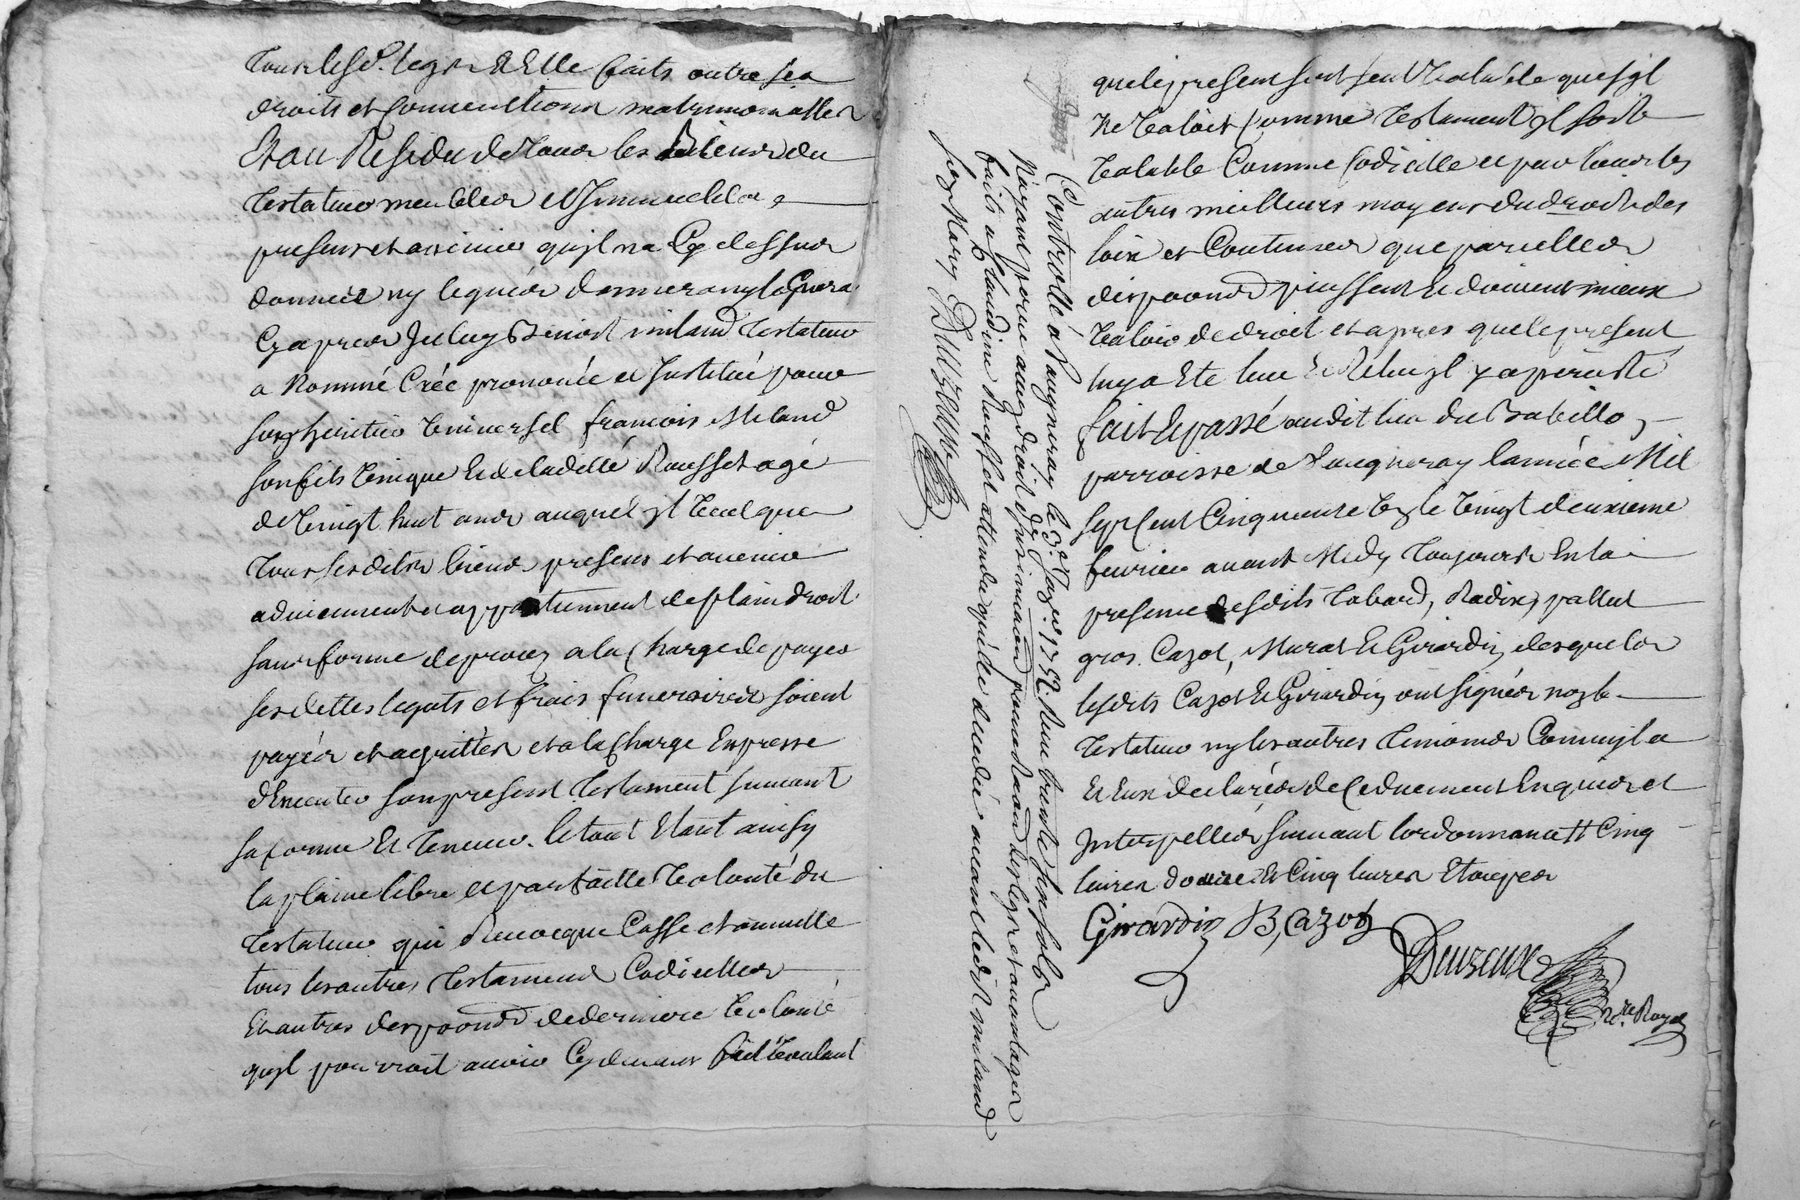 tous lesd. legs Et Elle faits outre ses
droits et Conventions matrimonialles
Et au Residu de tous les Biens du
testateur meubles et Immeubles
presens et avenir qu'jl na Cy dessus
donnéé ny leguéés donnera ny leguera
Cy apres Jceluy Benoist miland testateur
a Nommé Créé prononcé et Jnstitué pour
son heritier Universel francois Miland
son fils Unique Et de ladille Rousset agé
de Vingt huit ans auquel jl Veut que
tous sesdits biens presens et avenir
adviennent et appartiennent de plain droit
sans forme de proces a la Charge de payer
ses dettes legats et frais funeraires soient
payés et aquittés et a la Charge Expresse
d'Executer son present testament suivant
sa forme Et teneur. le tout Etant ainsy
la plaine libre et parfaitte Volonté du
testateur qui Revocque Casse et annulle
tous les autres testamens Codicilles
Et autres dispoons de derniere Volonté
qu'jl pourroit avoir Cy devant fait Voulant
Controllé à Vaugneray le 3e Jour 1752. Reçu trente six sols
N'ayant perçu aucun droit d'Insinuaōn pour Raison des legs et avantages
faits a Claudine Rousset attendu qu'elle decedée avant ledit miland
son mary Deuzeux
que le present soit seul Valable que s'jl
Ne Valoit Comme testament jl soit
Valable Comme Codicille et par tous les
autres meilleurs moyens du droit des
loix et Coutumes que pareilles
dispoons puissent et doivent mieux
Valoir de droit et apres que le present
luy a Eté leu Et Releu jl y a persisté
fait Et passé audit lieu du Brabillo
parroisse de Vaugneray l'année Mil
sept Cent Cinquante le Vingt deuxieme
fevrier avant Midy toujours En la
presence desdits tabard, Radix, pallut
gros Cazot, Murat Et Girardin desquels
lesdits Cazot Et Girardin ont signés non le
testateur ny les autres temoins
Et Eux declarés de Ce duement Enquis et
Jnterpellés suivant l'ordonnance Cinq
livres Et Cinq livres
Girardin B, Cazot
Deuzeux
Nre Royal